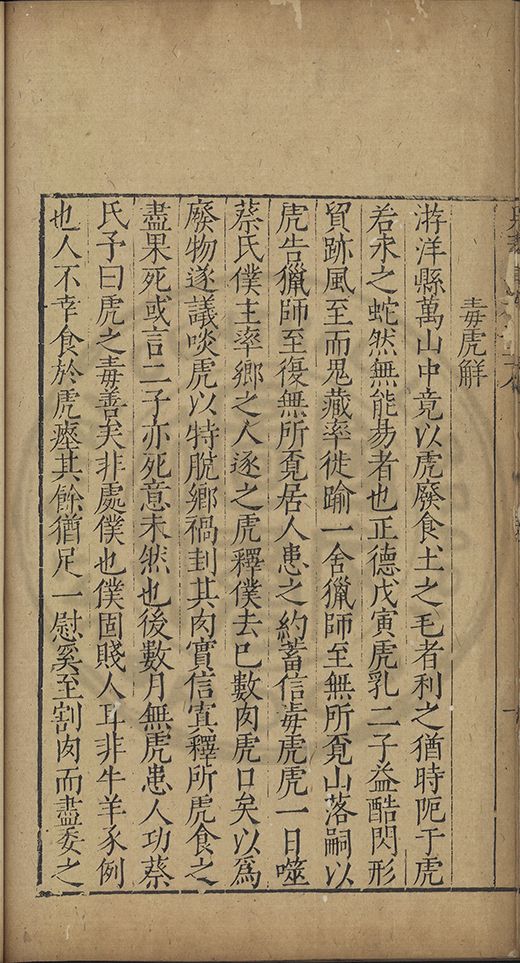 毒虎解
游洋縣萬山中竟以虎廢食土之毛者利之猶時阨于虎
若永之蛇然無能昜者也正德戊寅虎乳二子益酷閃形
貿跡風至而鬼藏率徙踰一舍獵師至無所覔山落嗣以
虎告獵師至復無所覔居人患之約蓄信毒虎虎一日噬
蔡氏僕主率鄉之人逐之虎釋僕去巳數肉虎口矣以爲
廢物遂議啖虎以特脫鄉禍刲其肉實信寘釋所虎食之
盡果死或言二子亦死意未然也後數月無虎患人功蔡
氏予曰虎之毒善矣非處僕也僕固賤人耳非牛羊豕例
也人不幸食於虎瘞其餘猶足一慰奚至割肉而盡委之